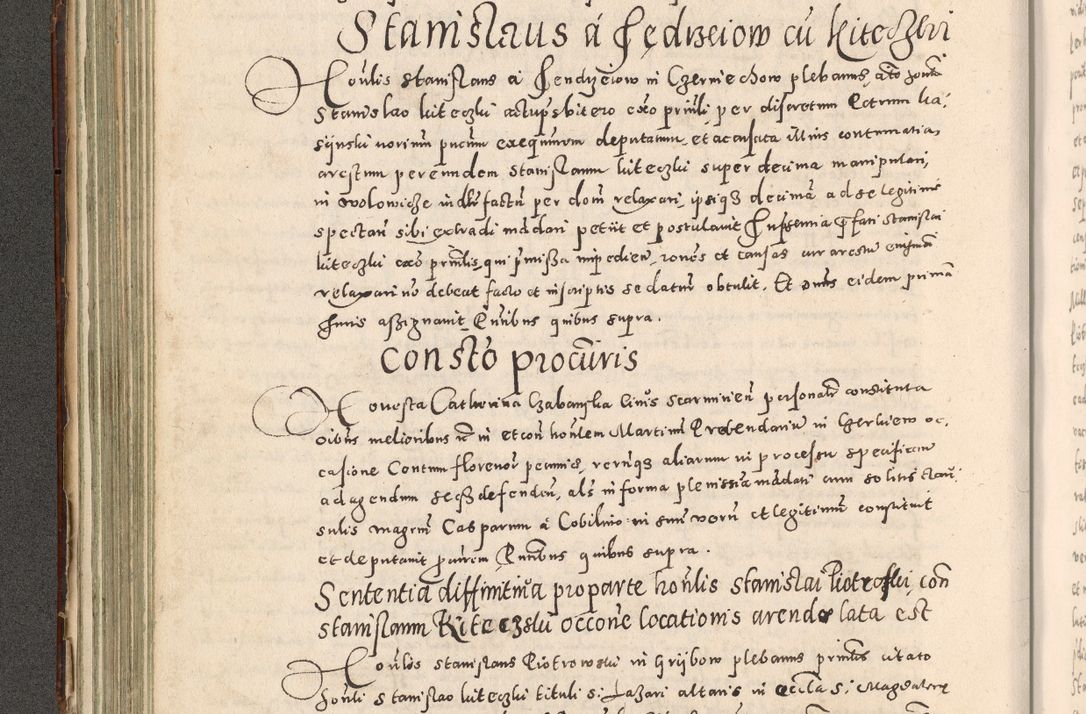 Stanislaus á Fędrzeiow cū Kiteczki
Honlis Stanislaus á Fendrzeiow in Czerniechow plebanus, citato honli
Stanislao kiteczki actu prsbitero coro prmli per discretum Petrum
norinm prnum exequutorem deputatum, et accusata illius contumatia,
arestum per eundem Stanislaum kiteczki super decima manipulari,
in Wolowicze in dlu factū per dom relaxari, ipsiqз decimā ad se legitime
spectan sibi extradi mādari petiit et postulavit Insrentia pfati Stanislai
kiteczki coro prmlis, qui pmissa impedien, rones et causas cur arestū
relaxari nō debeat facto et inscriptis se datur obtulit. Et dnus eidem primā
Iuris assignavit Pntibus quibus supra.
Constō procūris
Honesta Catherina Czabanska civis scarmirien personalr constituta
oibus melioribus et con honlem Martinū Prebendariū in oc,
casione Centum florenor pecunie, rerūqз aliarum in processu specificatar
ad agendum seqз defenden, als in forma plenissima mādati cum solitis clau,
sulis magrm Casparum á Cobilino in suū verū et legitimū constituit
et deputavit Pntibus quibus supra.
Sententia diffinitiva pro parte honlis Stanislai Piotrofski, con
Stanislaum Kiteczski occone locationis arende lata est
Honlis Stanislaus Piotrowski in Grijbow plebanus prmlis citato
Honli Stanislao kiteczki tituli S: Lazari altaris in eccla S: Magdalene